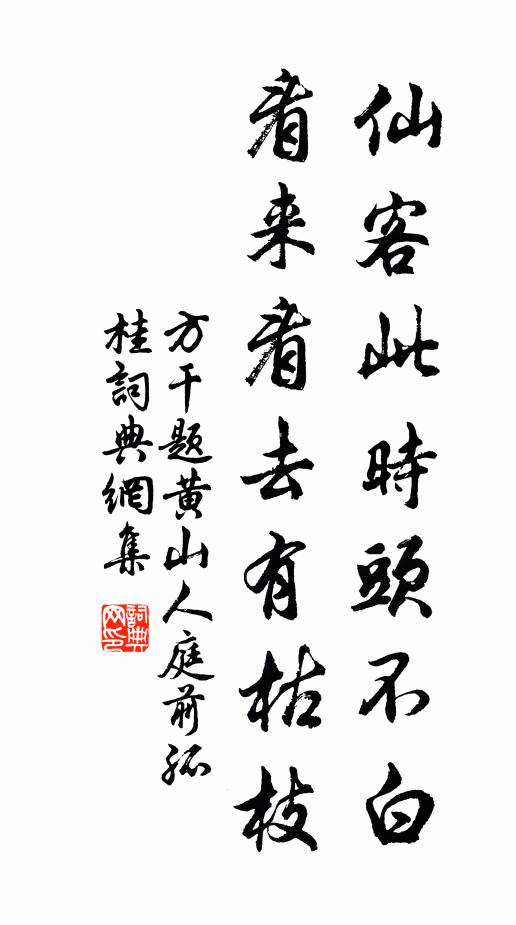 仙客此時頭不白
看来看去有枯枝
方干題黄山人庭前孤
桂詞典網集
詞典
网印